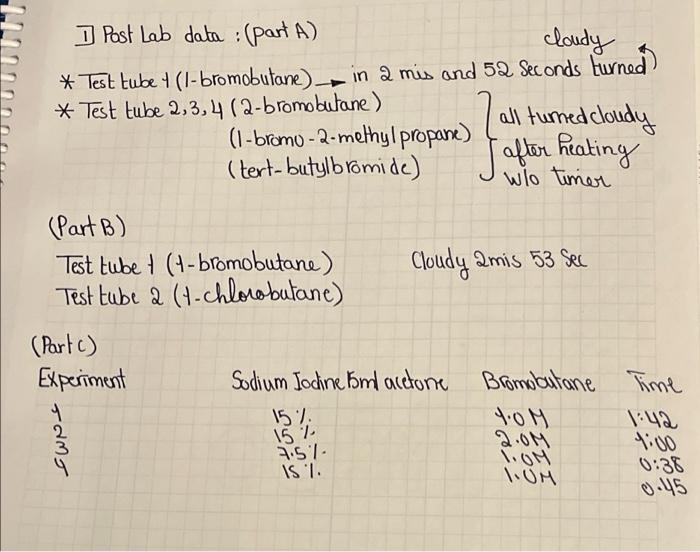 1) Post Lab data : (part A)
cloudy
* Test tube 1 (1-bromobutane) → in 2 mis and 52 Seconds turned
* Test tube 2,3,4 (2-bromobutane)
(1-bromo-2-methylpropane)
(tert-butylbromide)
all turned cloudy
after heating
w/o timer
(Part B)
Test tube 1 (1-bromobutane) Cloudy 2mis 53 Sec
Test tube 2 (1-chlorobutane)
(Part C)
Experiment Sodium Iodine 15ml acetone Bromobutane Time
1 15%. 1.0M 1:42
2 15%. 2.0M 1:00
3 7.5%. 1.0M 0:38
4 15%. 1.0M 0.45